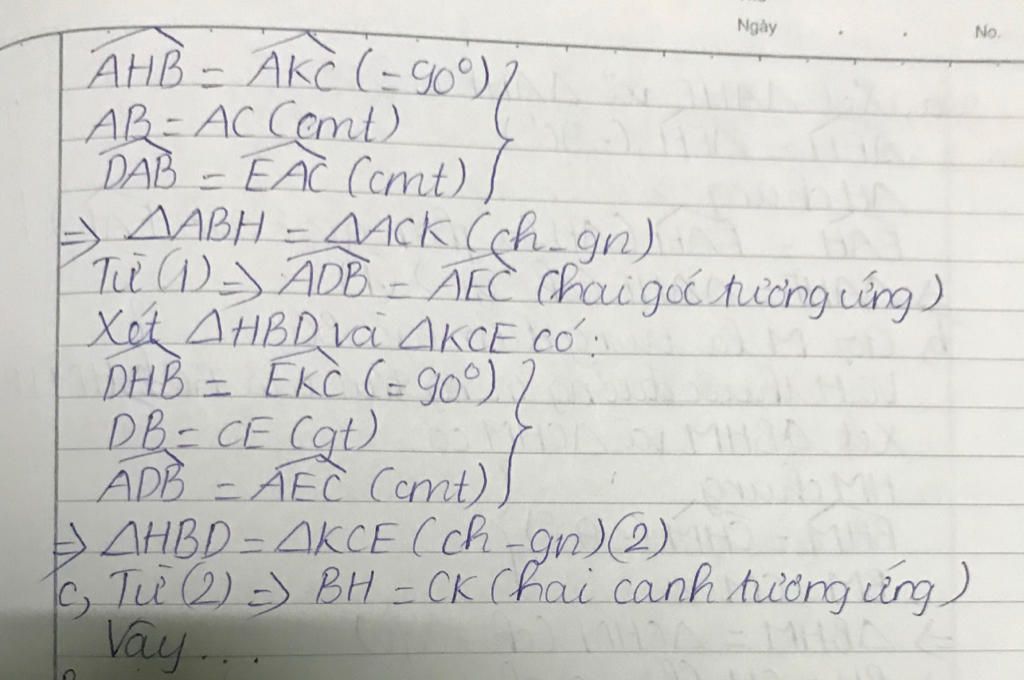 Ngày . . No.
AHB = AKC (=90°)
AB = AC (cmt)
DAB = EAC (cmt)
⇒ ΔABH = ΔACK (ch-gn)
Từ (1) ⇒ ADB = AEC (hai góc tương ứng)
Xét ΔHBD và ΔKCE có:
DHB = EKC (=90°)
DB = CE (gt)
ADB = AEC (cmt)
⇒ ΔHBD = ΔKCE (ch-gn) (2)
c, Từ (2) ⇒ BH = CK (hai cạnh tương ứng)
Vậy...